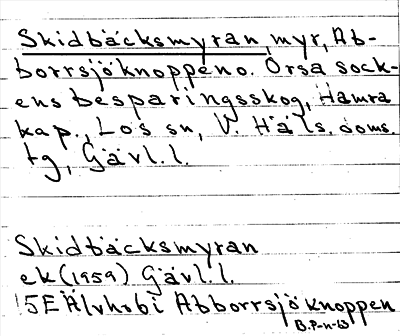 Skidbäcksmyran, myr, Ab-
borrsjöknoppen o. Orsa sock-
ens besparingsskog, Hamra
kap., Los sn, V. Häls. doms.
tg, Gävl. l.
Skidbäcksmyran
ek (1959) Gävl. l.
15E Älvhobi Abborrsjöknoppen